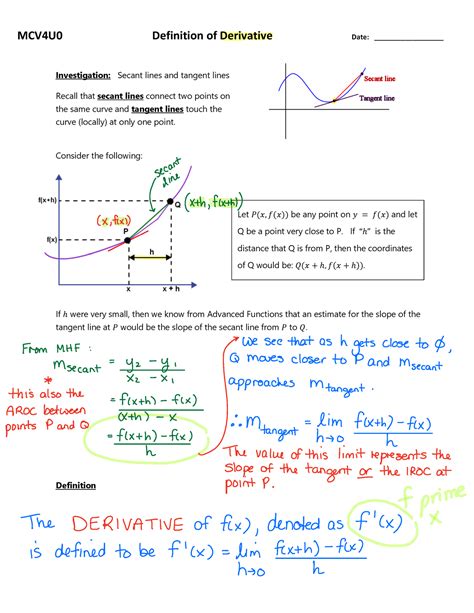 MCV4U0 Definition of Derivative Date: ____________
Investigation: Secant lines and tangent lines
Recall that secant lines connect two points on
the same curve and tangent lines touch the
curve (locally) at only one point.
Secant line
Tangent line
Consider the following:
secant
line
f(x+h)
Q (x+h, f(x+h))
(x, f(x))
P
f(x)
h
x x + h
Let P(x, f(x)) be any point on y = f(x) and let
Q be a point very close to P. If "h" is the
distance that Q is from P, then the coordinates
of Q would be: Q(x + h, f(x + h)).
If h were very small, then we know from Advanced Functions that an estimate for the slope of the
tangent line at P would be the slope of the secant line from P to Q.
From MHF :
m secant = y₂ - y₁
x₂ - x₁
*
this also the
AROC between
points P and Q
= f(x+h) - f(x)
(x+h) - x
= f(x+h) - f(x)
h
We see that as h gets close to 0,
Q moves closer to P and m secant
approaches m tangent .
∴ m tangent = lim f(x+h) - f(x)
h→0 h
The value of this limit represents the
slope of the tangent or the IROC at
point P.
Definition
f prime
x
The DERIVATIVE of f(x), denoted as f'(x)
is defined to be f'(x) = lim f(x+h) - f(x)
h→0 h